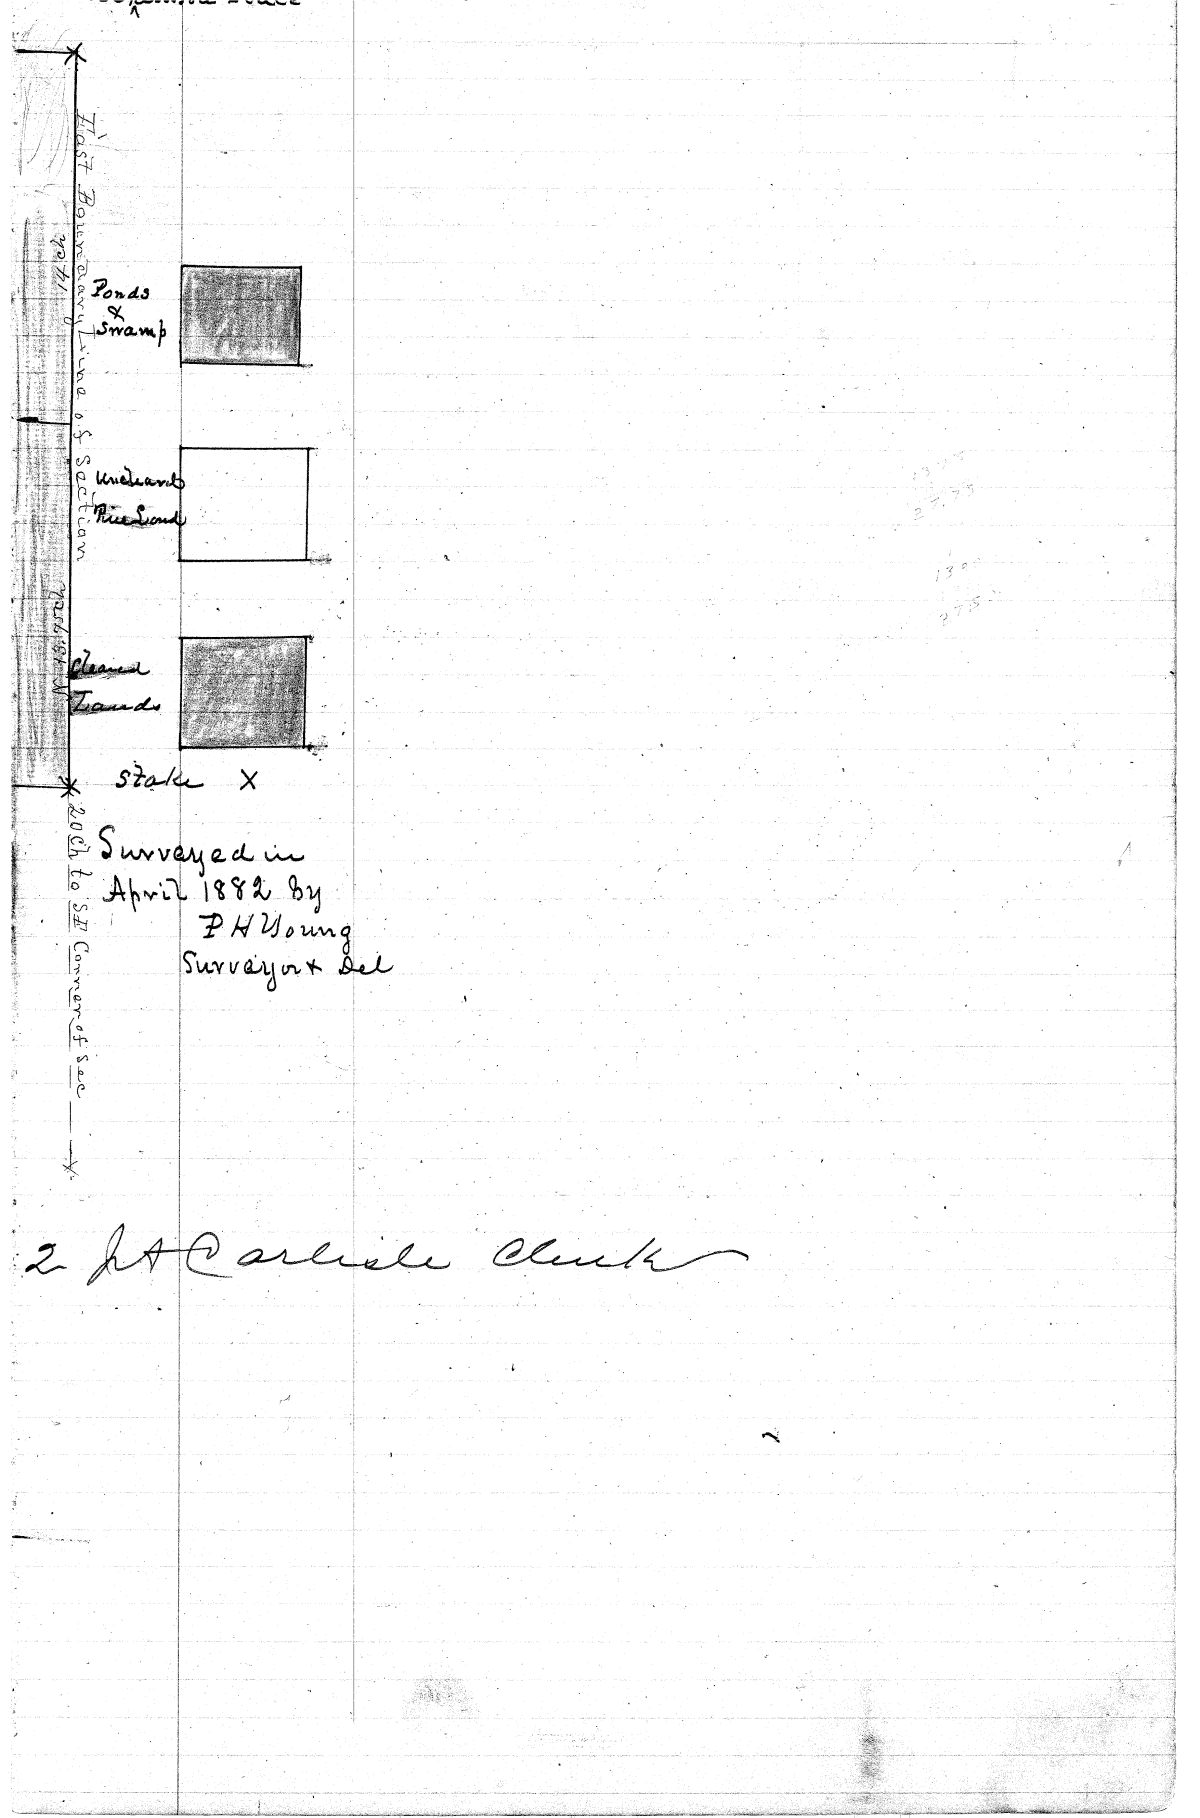 East Boundary Line of Section
Ponds
&
Swamp
Uncleard
Pine Land
Cleared
Lands
Stake X
20 Ch to SE Corner of Sec
Surveyed in
April 1882 By
P H Young
Surveyor & Del
2 Carlisle Clerk